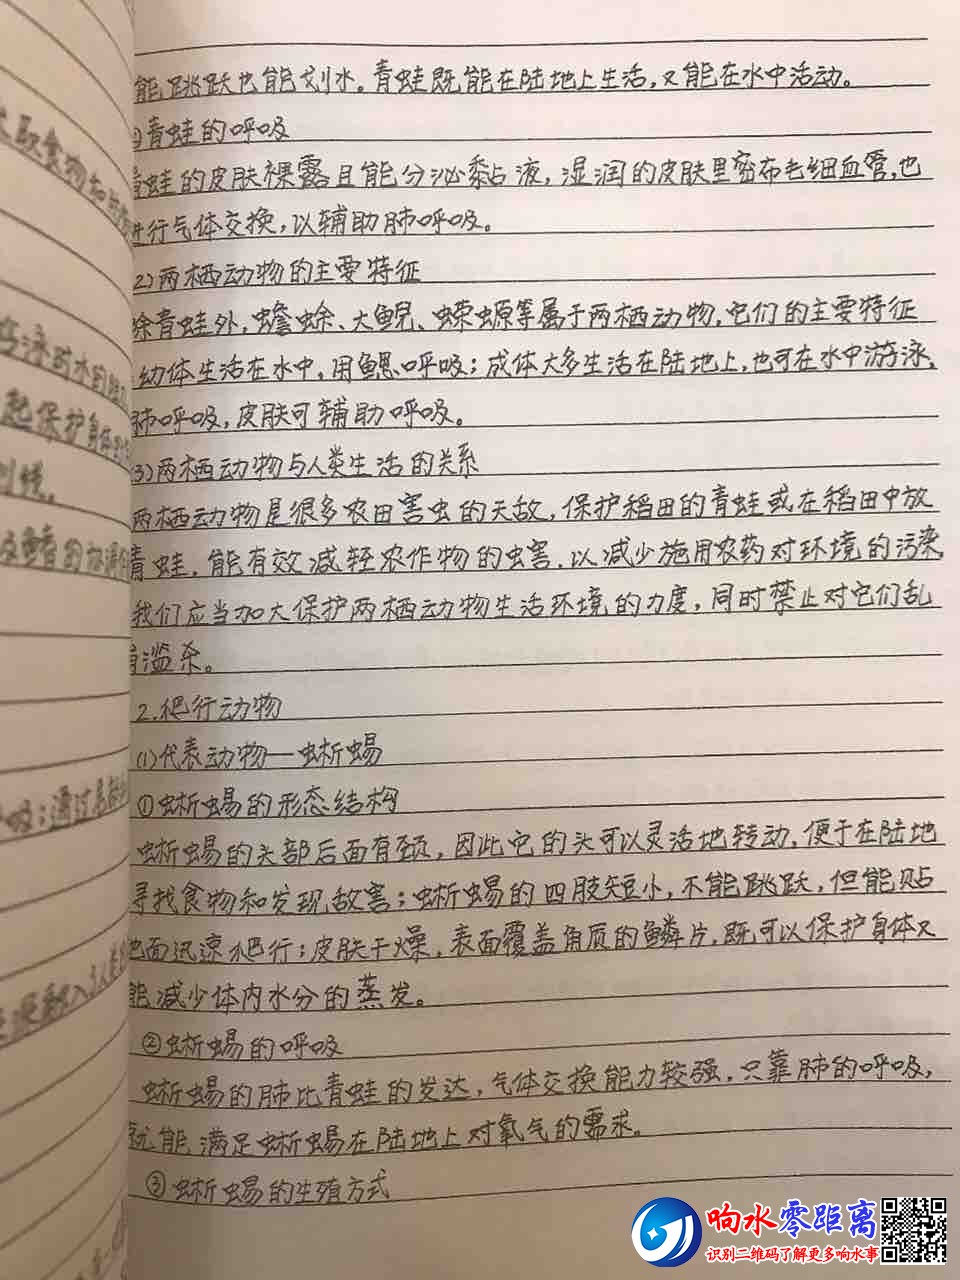 能跳跃也能划水。青蛙既能在陆地上生活,又能在水中活动。
青蛙的呼吸
青蛙的皮肤裸露且能分泌黏液,湿润的皮肤里密布毛细血管,也
进行气体交换,以辅助肺呼吸。
2)两栖动物的主要特征
除青蛙外,蟾蜍、大鲵、蝾螈等属于两栖动物,它们的主要特征
幼体生活在水中,用鳃呼吸;成体大多生活在陆地上,也可在水中游泳,
肺呼吸,皮肤可辅助呼吸。
(3)两栖动物与人类生活的关系
两栖动物是很多农田害虫的天敌,保护稻田的青蛙或在稻田中放
青蛙,能有效减轻农作物的虫害,以减少施用农药对环境的污染
我们应当加大保护两栖动物生活环境的力度,同时禁止对它们乱
滥杀。
2.爬行动物
(1)代表动物—蜥蜴
①蜥蜴的形态结构
蜥蜴的头部后面有颈,因此它的头可以灵活地转动,便于在陆地
寻找食物和发现敌害;蜥蜴的四肢短小,不能跳跃,但能贴
地面迅速爬行;皮肤干燥,表面覆盖角质的鳞片,既可以保护身体又
能减少体内水分的蒸发。
②蜥蜴的呼吸
蜥蜴的肺比青蛙的发达,气体交换能力较强,只靠肺的呼吸,
就能满足蜥蜴在陆地上对氧气的需求。
③蜥蜴的生殖方式
取食物和
保护身体
的水的
:通过
响水零距离
识别二维码了解更多响水事